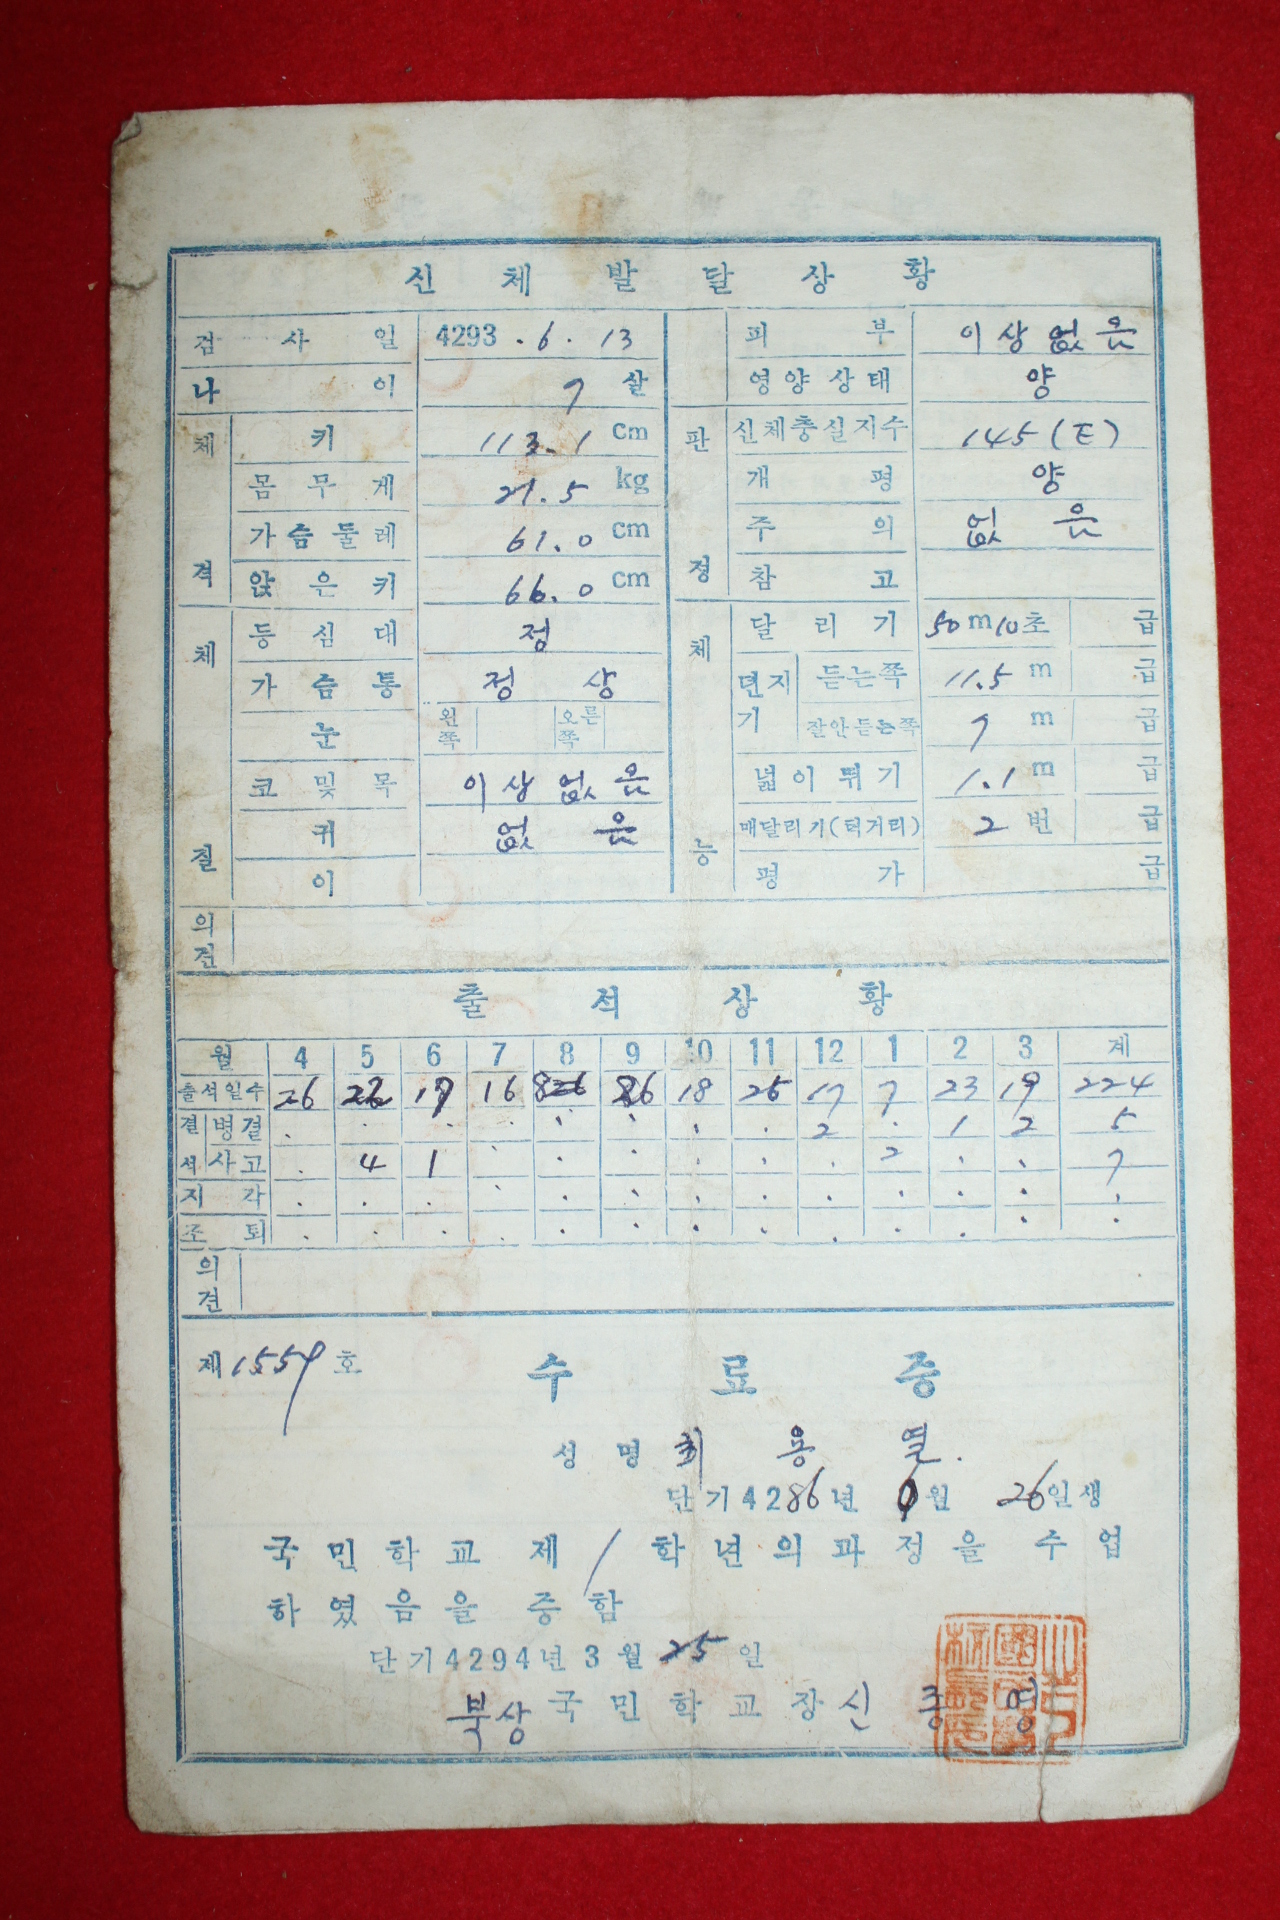 신체발달상황
검사일 4293.6.13 피부 이상없음
나이 7살 영양상태 양
체격 키 113.1 cm 판정 신체충실지수 145(E)
몸무게 21.5 kg 개평 양
가슴둘레 61.0 cm 주의 없음
앉은키 66.0 cm 참고
체질 등심대 정 체능 달리기 50m 10초 급
가슴통 정상 던지기 듣는쪽 11.5 m 급
눈 왼쪽 오른쪽 잘안듣는쪽 7 m 급
코및목 이상없음 넓이뛰기 1.1 m 급
귀 없음 매달리기(턱거리) 2 번 급
이 평가 급
의견
출석상황
월 4 5 6 7 8 9 10 11 12 1 2 3 계
출석일수 26 17 16 26 18 25 17 7 23 19 224
결석 병결 . . . . . . . . 2 . 1 2 5
사고 . 4 1 . . . . . . 2 . . 7
지각 . . . . . . . . . . . . .
조퇴 . . . . . . . . . . . . .
의견
제1559호 수료증
성명 최용열.
단기4286년 월 26일생
국민학교 제1학년의과정을 수업
하였음을 증함
단기4294년 3월 25일
북상국민학교장 신종명